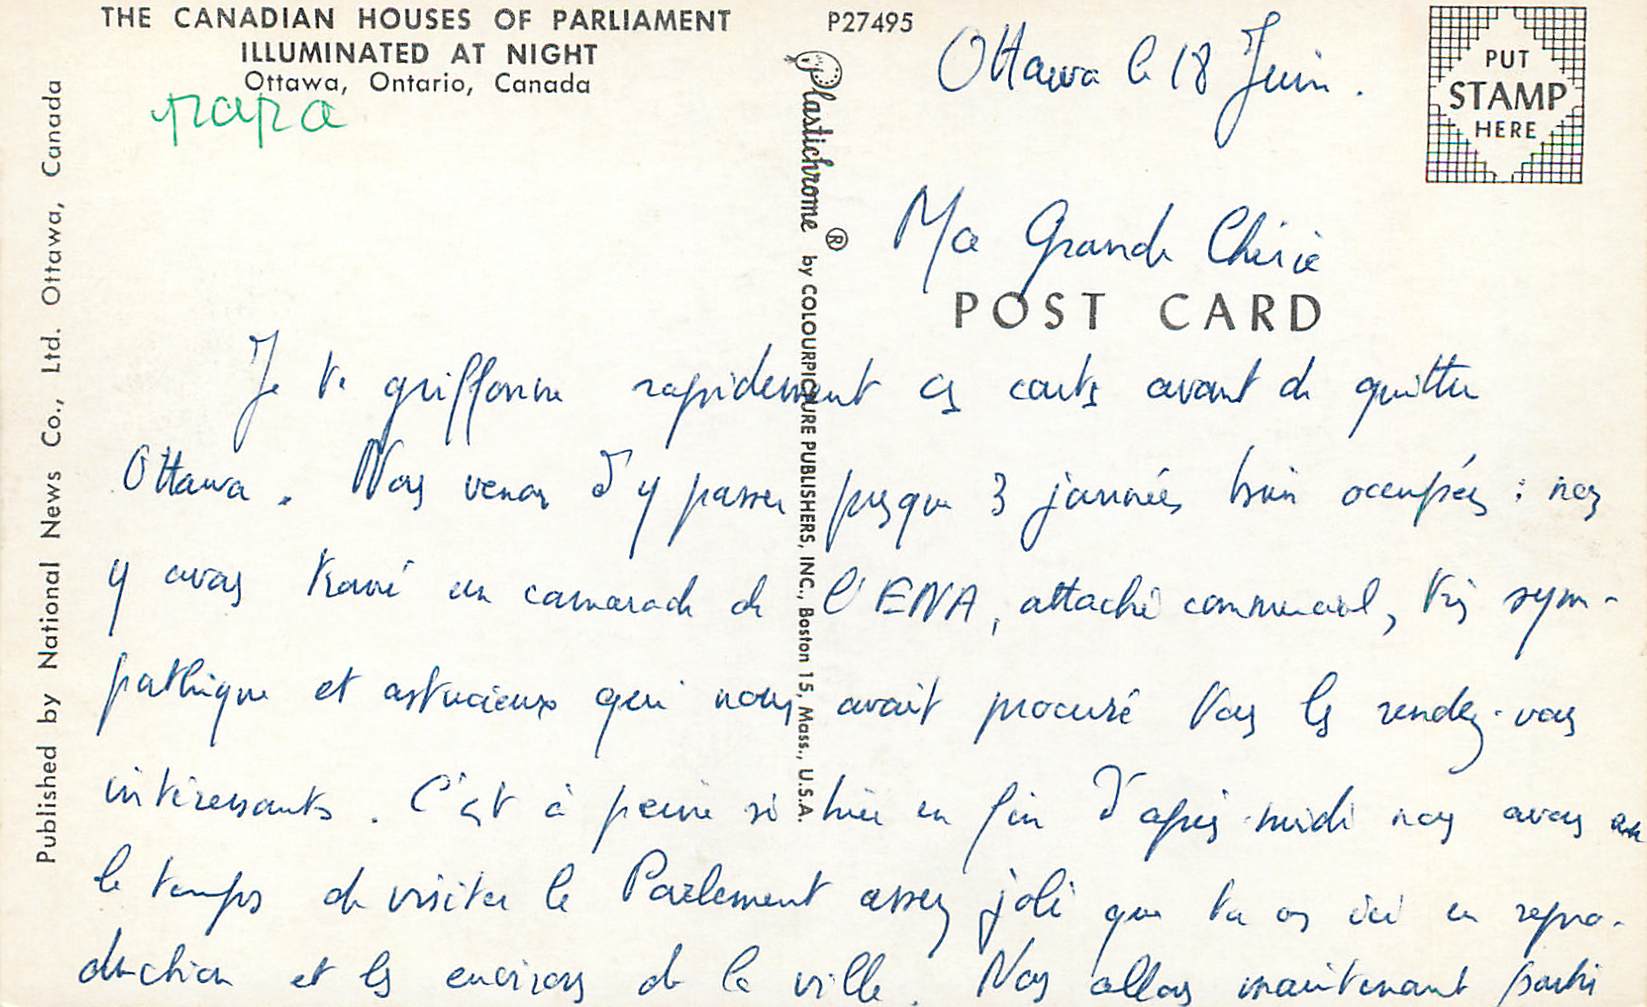 THE CANADIAN HOUSES OF PARLIAMENT
ILLUMINATED AT NIGHT
Ottawa, Ontario, Canada
papa
P27495
Ottawa le 18 Juin.
PUT
STAMP
HERE
Published by National News Co., Ltd. Ottawa, Canada
Plastichrome ® by COLOURPICTURE PUBLISHERS, INC., Boston 15, Mass., U.S.A.
Ma Grande Chérie
POST CARD
Je te griffonne rapidement ces cartes avant de quitter
Ottawa. Nous venons d'y passer presque 3 journées bien occupées : nous
y avons trouvé un camarade de l'ENA, attaché commercial, très sym-
pathique et astucieux qui nous avait procuré tous les rendez-vous
intéressants. C'est à peine si hier en fin d'après-midi nous avons
le temps de visiter le Parlement assez joli que tu as ici en repro-
duction et les environs de la ville. Nous allons maintenant partir